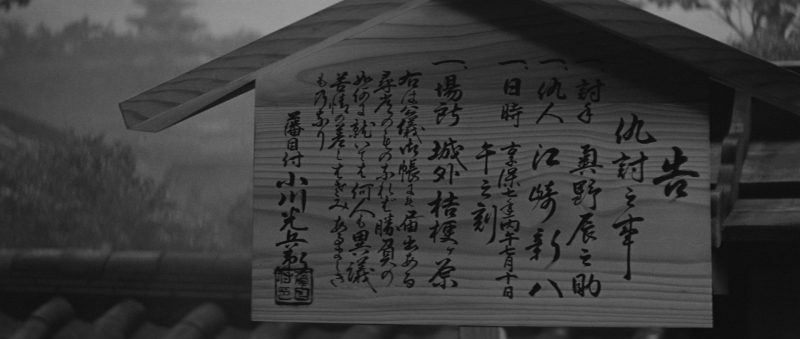 告
仇討之事
一、討手 真野辰之助
一、仇人 江崎新八
一、日時 享保十一年丙午七月十日
午之刻
一、場所 城外桔梗ヶ原
右は公儀御帳に も届出ある
尋常のものなれば勝負の
如何に就いては何人も異議
苦情の差しはさみあるまじき
ものなり
藩目付 小川光兵衛